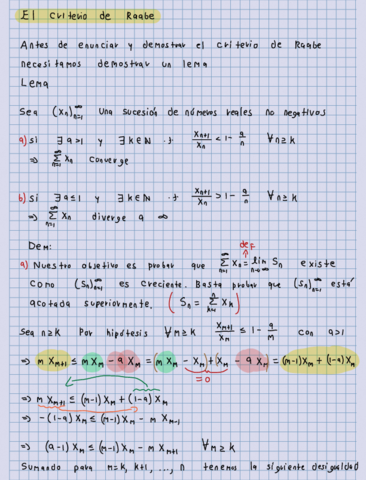 El criterio de Raabe
Antes de enunciar y demostrar el criterio de Raabe
necesitamos demostrar un lema
Lema
Sea (Xn)∞n=1 una sucesión de números reales no negativos
a) si ∃ a>1 y ∃ k∈ℕ .t Xn+1/Xn < 1 - a/n ∀n≥k
⇒ ∞∑n=1 Xn converge
b) si ∃ a≤1 y ∃ k∈ℕ .t Xn+1/Xn > 1 - a/n ∀n≥k
⇒ ∞∑n=1 Xn diverge a ∞
Dem:
def
a) Nuestro objetivo es probar que ∞∑n=1 Xn = lim n→∞ Sn existe
como (Sn)∞n=1 es creciente. Basta probar que (Sn)∞n=1 está
acotada superiormente. (Sn = n∑k=1 Xk)
Sea n≥k Por hipótesis ∀m≥k Xm+1/Xm ≤ 1 - a/m con a>1
⇒ m Xm+1 ≤ m Xm - a Xm = (m Xm - Xm) + (Xm - a Xm) = (m-1)Xm + (1-a)Xm
=0
⇒ m Xm+1 ≤ (m-1)Xm + (1-a)Xm
⇒ -(1-a)Xm ≤ (m-1)Xm - m Xm+1
⇒ (a-1)Xm ≤ (m-1)Xm - m Xm+1 ∀m≥k
Sumando para m=k, k+1, ..., n tenemos la siguiente desigualdad